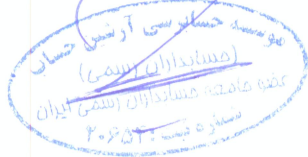 موسسه حسابرسی آرنس حساب
(حسابداران رسمی)
عضو جامعه حسابداران رسمی ایران
شماره ثبت: